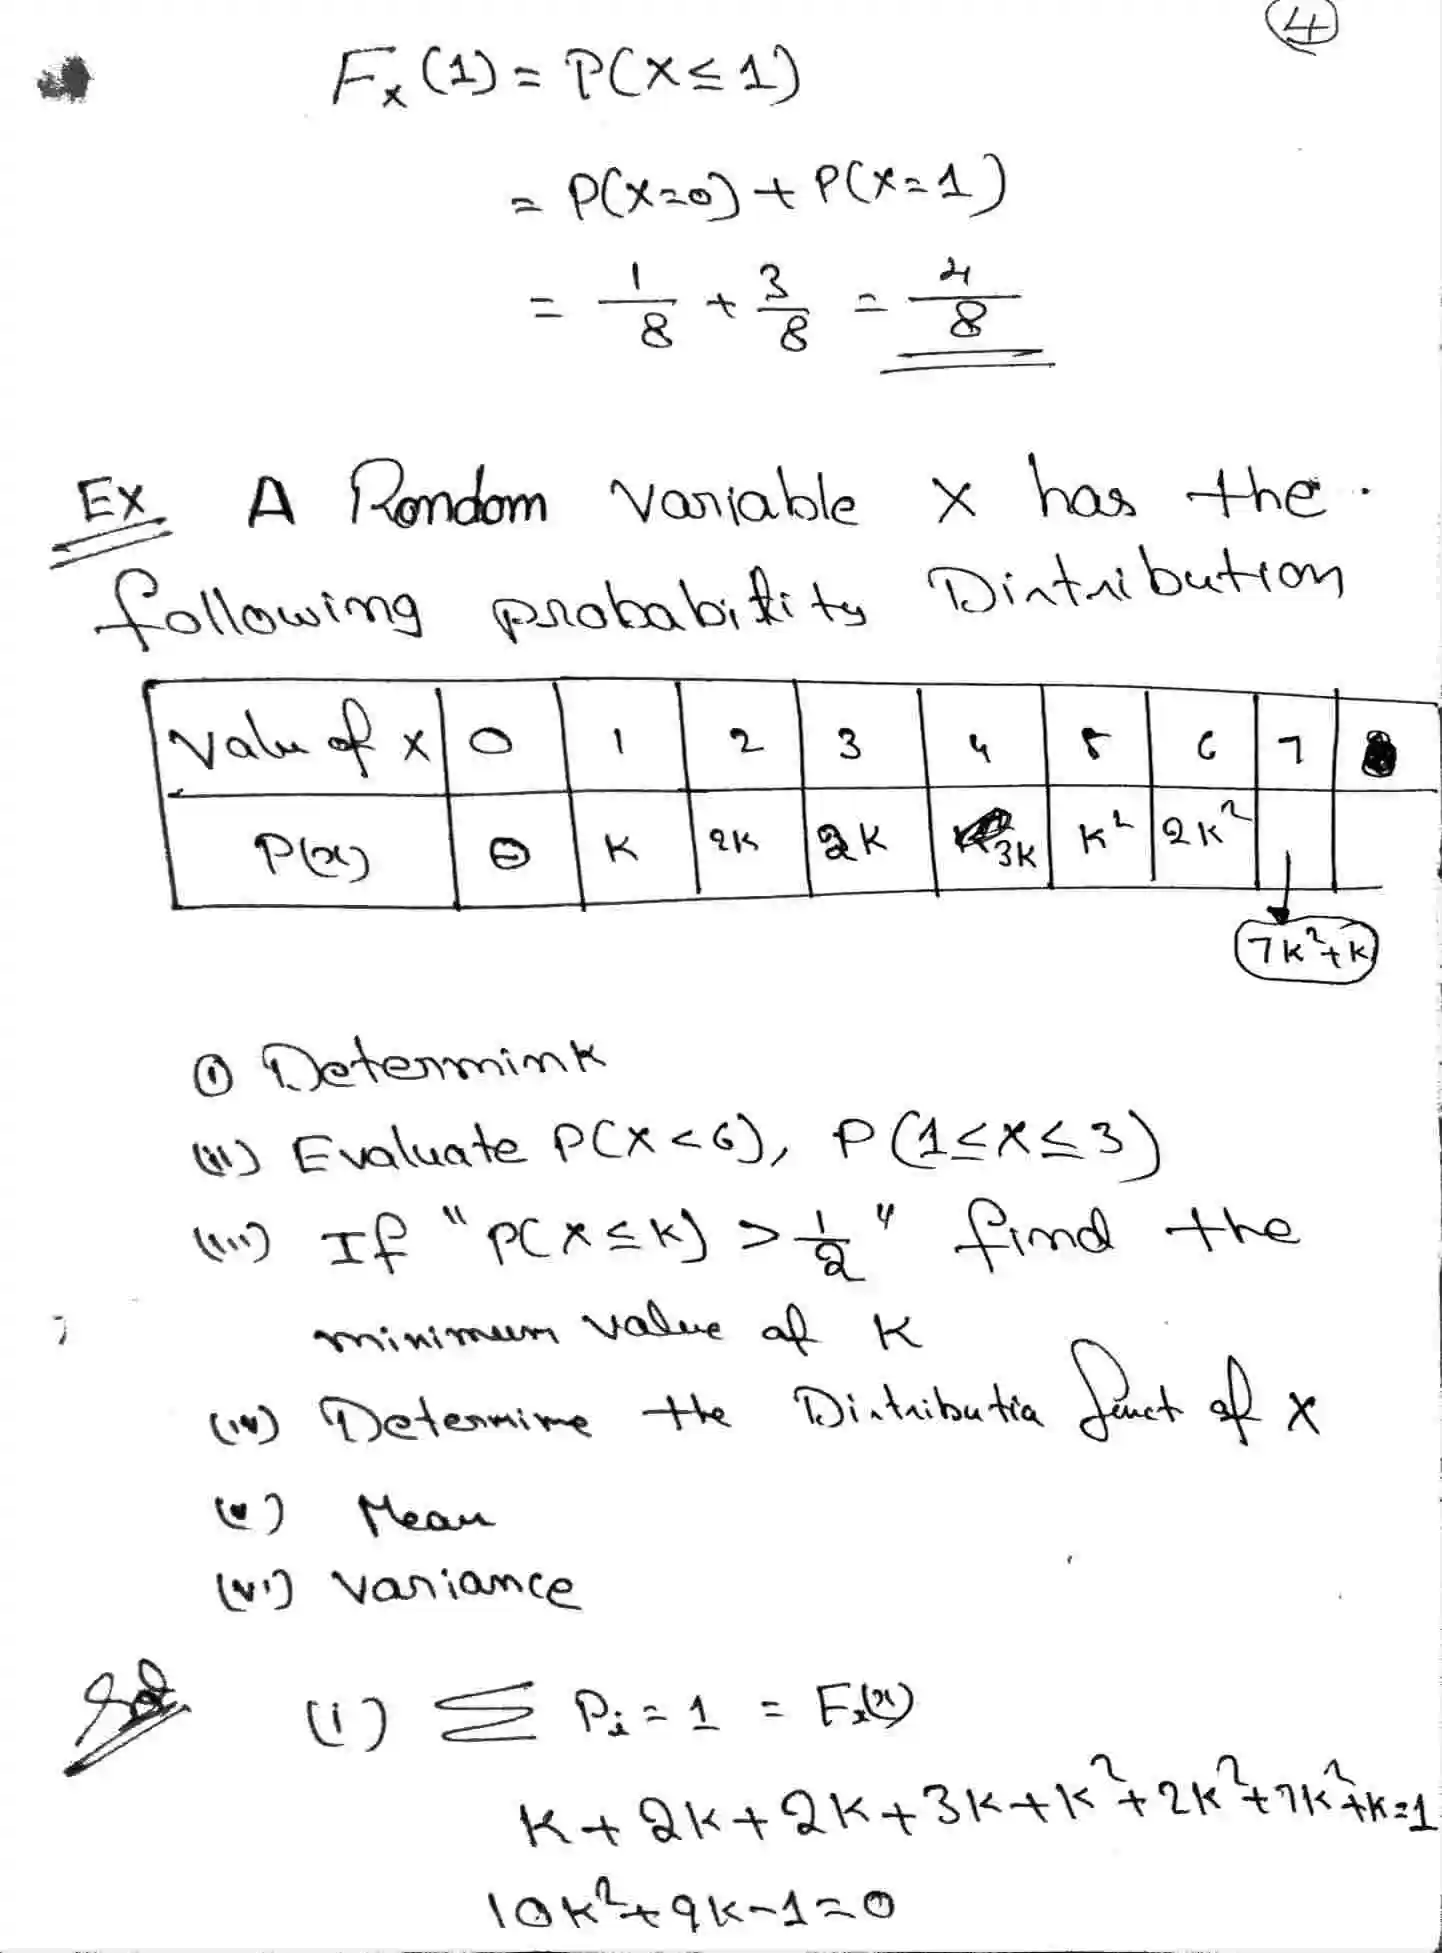 4
Fx(1) = P(X≤1)
= P(X=0) + P(X=1)
= 1/8 + 3/8 = 4/8
Ex A Random variable X has the
following probability Distribution
Value of x | 0 | 1 | 2 | 3 | 4 | 5 | 6 | 7
P(x) | 0 | K | 2K | 2K | 3K | K² | 2K²
7K²+K
(i) Determin K
(ii) Evaluate P(X<6), P(1≤X≤3)
(iii) If "P(X≤K) > 1/2" find the
minimum value of K
(iv) Determine the Distributia funct of X
(v) Mean
(vi) Variance
Sol (i) Σ Pi = 1 = Fx(x)
K + 2K + 2K + 3K + K² + 2K² + 7K² + K = 1
10K² + 9K - 1 = 0